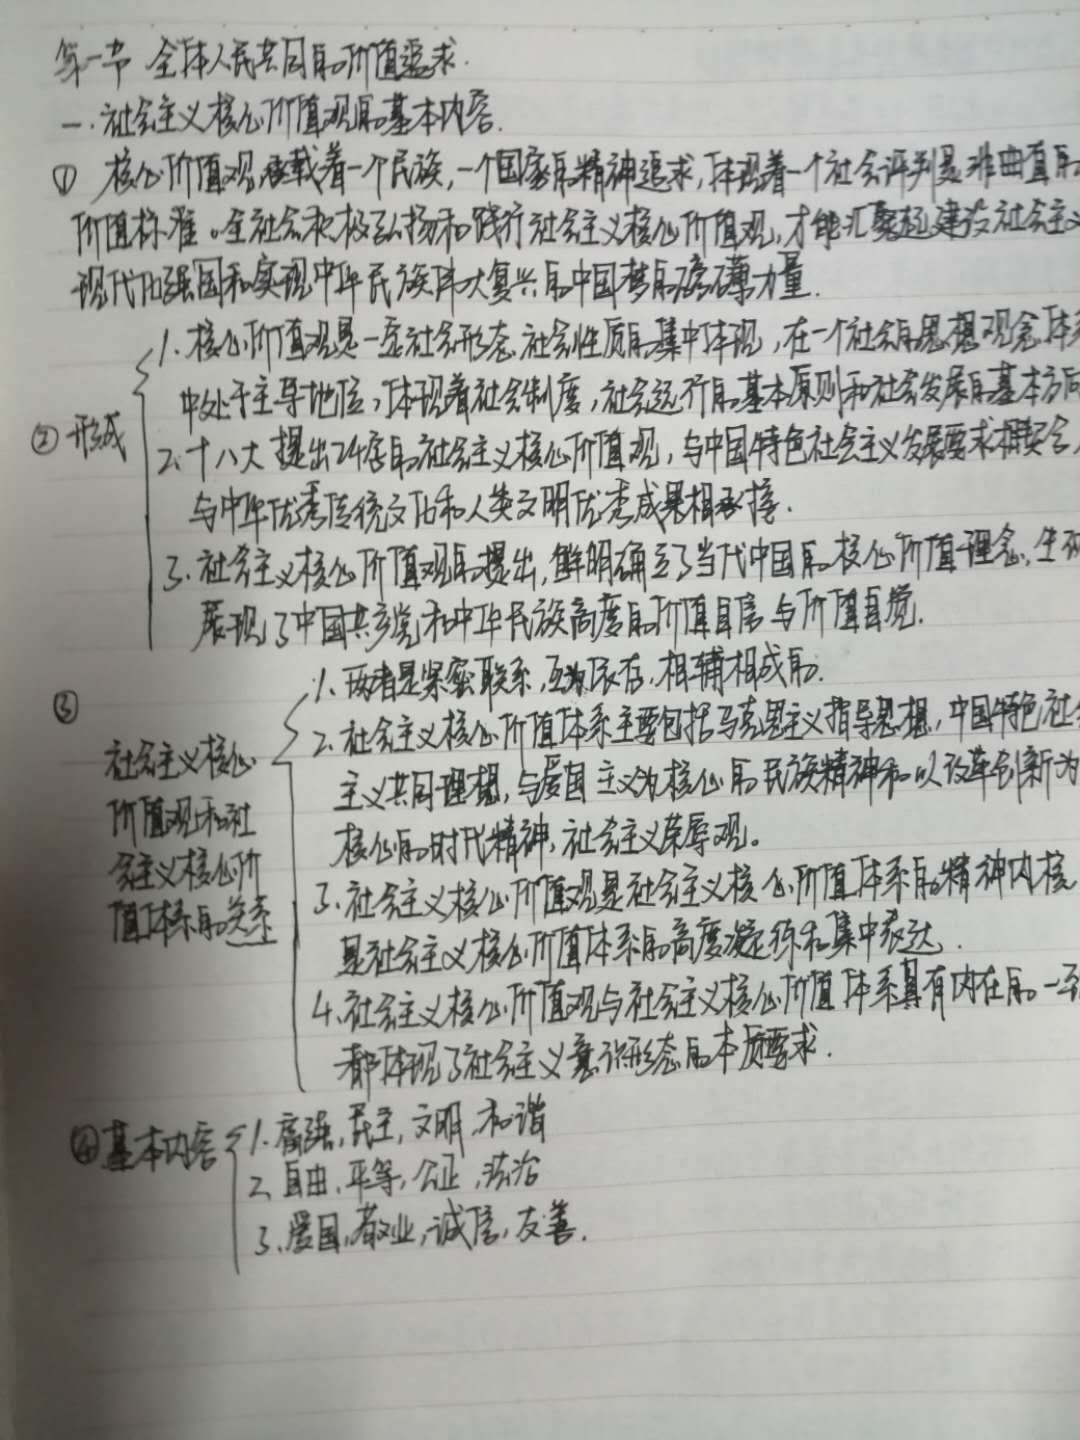 第一节 全体人民共同的价值追求.
一.社会主义核心价值观的基本内容.
① 核心价值观,承载着一个民族,一个国家的精神追求,体现着一个社会评判是非曲直的
价值标准。全社会积极弘扬和践行社会主义核心价值观,才能汇聚起建设社会主义
现代化强国和实现中华民族伟大复兴的中国梦的磅礴力量.
1.核心价值观是一定社会形态社会性质的集中体现,在一个社会的思想观念体系
中处于主导地位,体现着社会制度,社会运行的基本原则和社会发展的基本方向
② 形成
2.十八大提出24字的社会主义核心价值观,与中国特色社会主义发展要求相契合,
与中华优秀传统文化和人类文明优秀成果相承接.
3.社会主义核心价值观的提出,鲜明确立了当代中国的核心价值理念,生动
展现了中国共产党和中华民族高度的价值自信与价值自觉.
③
社会主义核心
价值观和社
会主义核心价
值体系的关系
1.两者是紧密联系,互为依存,相辅相成的.
2.社会主义核心价值体系主要包括马克思主义指导思想,中国特色社会
主义共同理想,与爱国主义为核心的民族精神和以改革创新为
核心的时代精神,社会主义荣辱观。
3.社会主义核心价值观是社会主义核心价值体系的精神内核
是社会主义核心价值体系的高度凝练和集中表达.
4.社会主义核心价值观与社会主义核心价值体系具有内在的一致
都体现了社会主义意识形态的本质要求.
④基本内容
1.富强,民主,文明,和谐
2.自由,平等,公正,法治
3.爱国,敬业,诚信,友善.